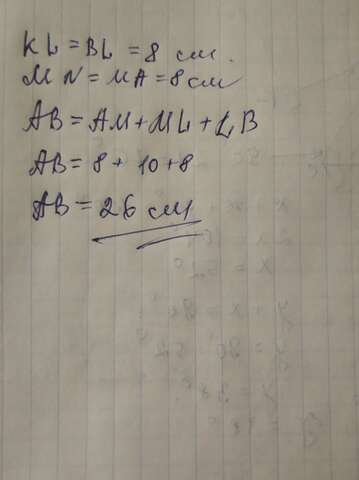 KL = BL = 8 см.
MN = MA = 8 см
AB = AM + ML + LB
AB = 8 + 10 + 8
AB = 26 см